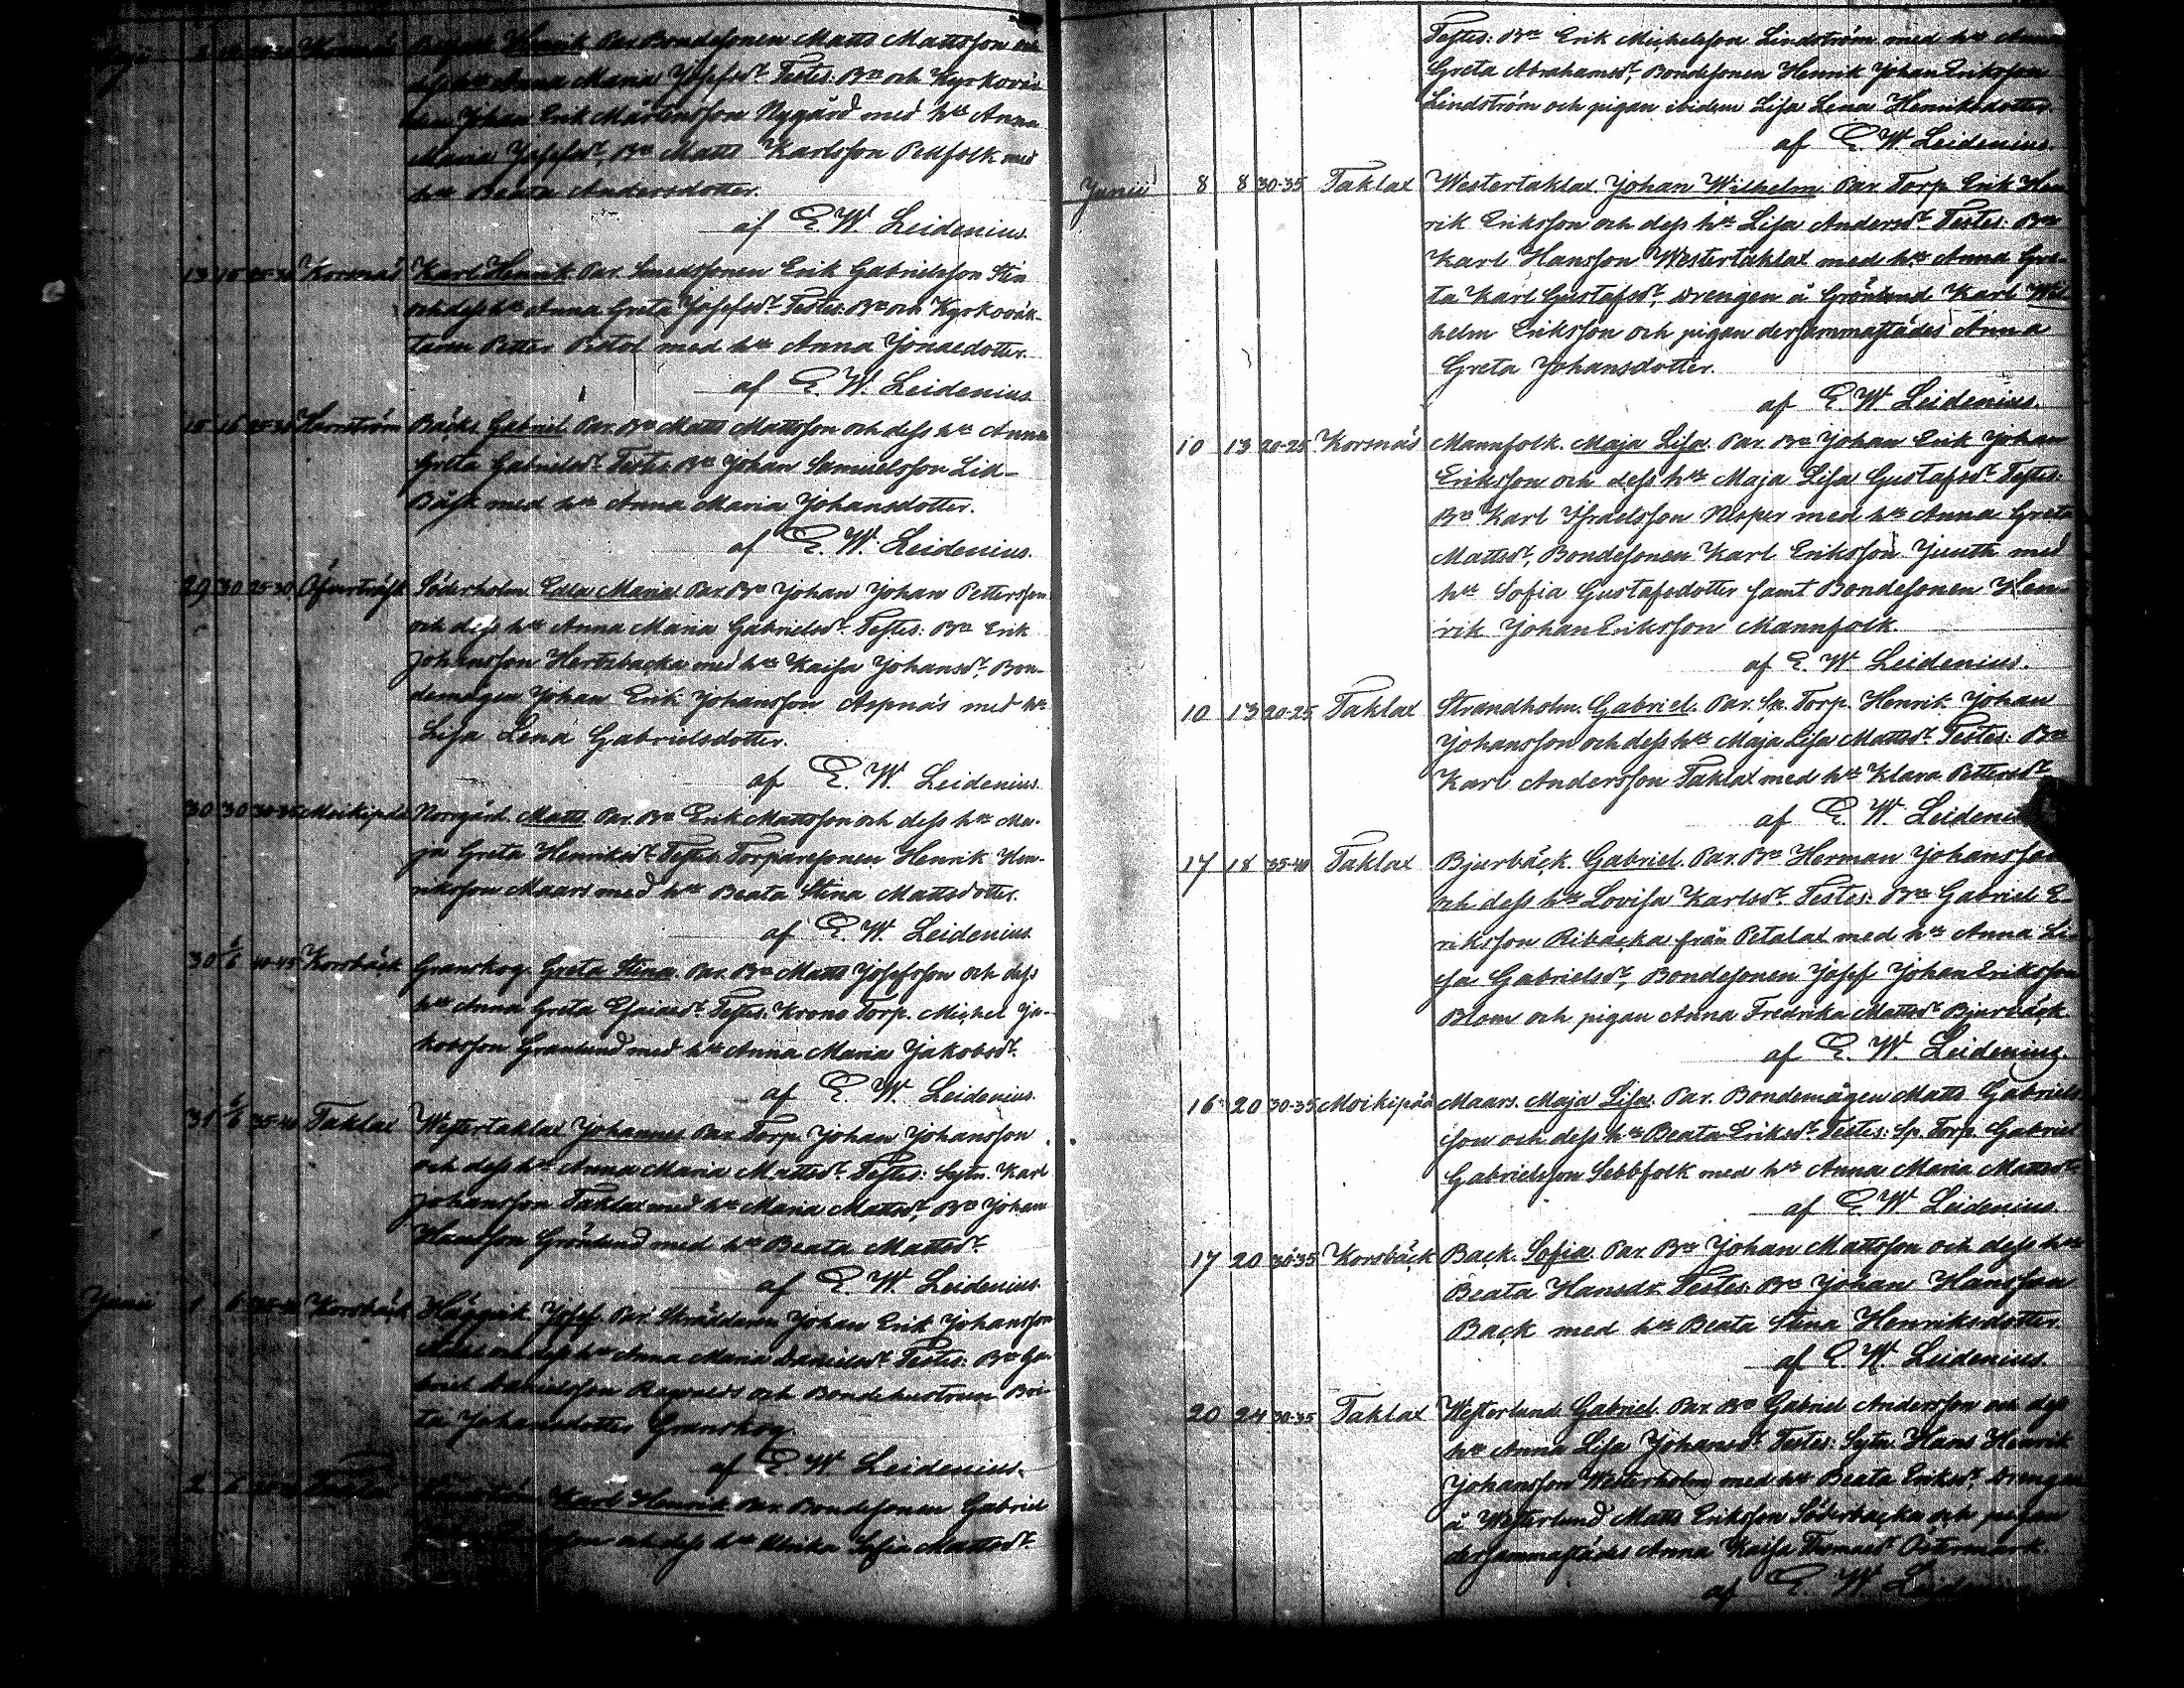 Korsnäs Henrik Par. Bondesonen Matts Mattsson och
dess hu Anna Maria Josefsdr. Testes: Bn och Kyrkovär-
Johan Erik Mårtensson Nygård med hu Anna
Maria Josefsdr, Bn Matts Karlsson Pellfolk med
hu Beata Andersdotter.
af E. W. Leidenius.
13 15 25-30 Korsnäs Karl Henrik Par. Smedssonen Erik Gabrielsson Stin
och dess hu Anna Greta Josefsdr. Testes: Bn och Kyrkovär-
Petter med hu Anna Jonaedotter.
af E. W. Leidenius.
15 16 25-30 Harrström Bäcks Gabriel Par. Bn Matts Mattsson och dess hu Anna
Greta Gabrielsdr. Testes Bn Johan Samuelsson Lid-
Bäck med hu Anna Maria Johansdotter.
af E. W. Leidenius.
29 30 25-30 Öfverträsk Söderholm Edla Maria Par. Bn Johan Johan Pettersson
och dess hu Anna Maria Gabrielsdr. Testes: Bn Erik
Johansson Hertsbacka med hu Kaisa Johansdr. Bon-
demågen Johan Erik Johansson Aspnäs med hu
Lisa Lena Gabrielsdotter.
af E. W. Leidenius.
30 30 30-35 Moikipää Norrgård. Matts Par. Bn Erik Mattsson och dess hu Ma-
ja Greta Henriksdr. Testes: Torparesonen Henrik Hen-
riksson Maars med hu Beata Stina Mattsdotter.
af E. W. Leidenius
30 1/6 40-45 Korsbäck Granskog. Greta Stina. Par. Bn Matts Josefsson och dess
hu Anna Greta Esaiasdr. Testes: Krono Torp. Michel Ja-
kobsson Granlund med hu Anna Maria Jakobsdr.
af E. W. Leidenius.
31 1/6 35-40 Taklax Westertaklax Johannes Par. Torp. Johan Johansson
och dess hu Anna Maria Mattsdr. Testes: Sytn. Karl
Johansson Taklax med hu Maria Mattsdr, Bn Johan
Hansson Grönlund med hu Beata Mattsdr.
af E. W. Leidenius.
Junii 1 6 Korsbäck Häggvik Josef. Par. Skräddaren Johan Erik Johansson
och dess hu Anna Maria Danielsdr. Testes: Bn Ga-
briel Danielsson Ragvals och Bondehustrun Bri-
ta Johansdotter Granskog.
af E. W. Leidenius.
2 6 Taklax Lindström Karl Henrik Par. Bondesonen Gabriel
och dess hu Ulrika Sofia Mattsdr.
Testes: Bn Erik Michelsson Lindström med hu Anna
Greta Abrahamsdr, Bondesonen Henrik Johan Eriksson
Lindström och pigan ibidem Lisa Lena Henriksdotter.
af E. W. Leidenius.
Junii 8 8 30-35 Taklax Westertaklax Johan Wilhelm Par. Torp. Erik Hen
rik Eriksson och dess hu Lisa Andersdr. Testes: Bn
Karl Hansson Westertaklax med hu Anna Gre-
ta Karl Gustafsdr, Drengen å Grönlund Karl Wil
helm Eriksson och pigan dersammastädes Anna
Greta Johansdotter.
af E. W. Leidenius.
10 13 20-25 Korsnäs Mannfolk. Maja Lisa. Par. Bn Johan Erik Johan
Eriksson och dess hu Maja Lisa Gustafsdr. Testes:
Bn Karl Israelsson Nisper med hu Anna Greta
Mattsdr, Bondesonen Karl Eriksson Juuth med
hu Sofia Gustafsdotter samt Bondesonen Hen-
rik Johan Eriksson Mannfolk.
af E. W. Leidenius.
10 13 20-25 Taklax Strandholm. Gabriel. Par. Sp. Torp. Henrik Johan
Johansson och dess hu Maja Lisa Mattsdr. Testes: Bn
Karl Andersson Taklax med hu Klara Pettersdr.
af E. W. Leideni
17 18 35-40 Taklax Bjurbäck. Gabriel. Par. Bn Herman Johansson
och dess hu Lovisa Karlsdr. Testes: Bn Gabriel E-
riksson Ribacka från Petalax med hu Anna Li-
sa Gabrielsdr, Bondesonen Josef Johan Eriksson
Blom och pigan Anna Fredrika Mattsdr Bjurbäck.
af E. W. Leidenius.
16 20 30-35 Moikipää Maars. Maja Lisa. Par. Bondemågen Matts Gabriels
son och dess hu Beata Eriksdr. Testes: Sp. Torp. Gabriel
Gabrielsson Sebbfolk med hu Anna Maria Mattsdr.
af E. W. Leidenius.
17 20 30-35 Korsbäck Back. Sofia. Par. Bn Johan Mattsson och dess hu
Beata Hansdr. Testes: Bn Johan Hansson
Back med hu Beata Stina Henriksdotter
af E. W. Leidenius.
20 24 30-35 Taklax Westerlund Gabriel. Par. Bn Gabriel Andersson och dess
hu Anna Lisa Johansdr. Testes: Sytn. Hans Henrik
Johansson Westerholm med hu Beata Eriksdr, Drengen
å Westerlund Matts Eriksson Söderbacka och pigan
dersammastädes Anna Kaisa Thomasdr Östermark.
af E. W. Leidenius